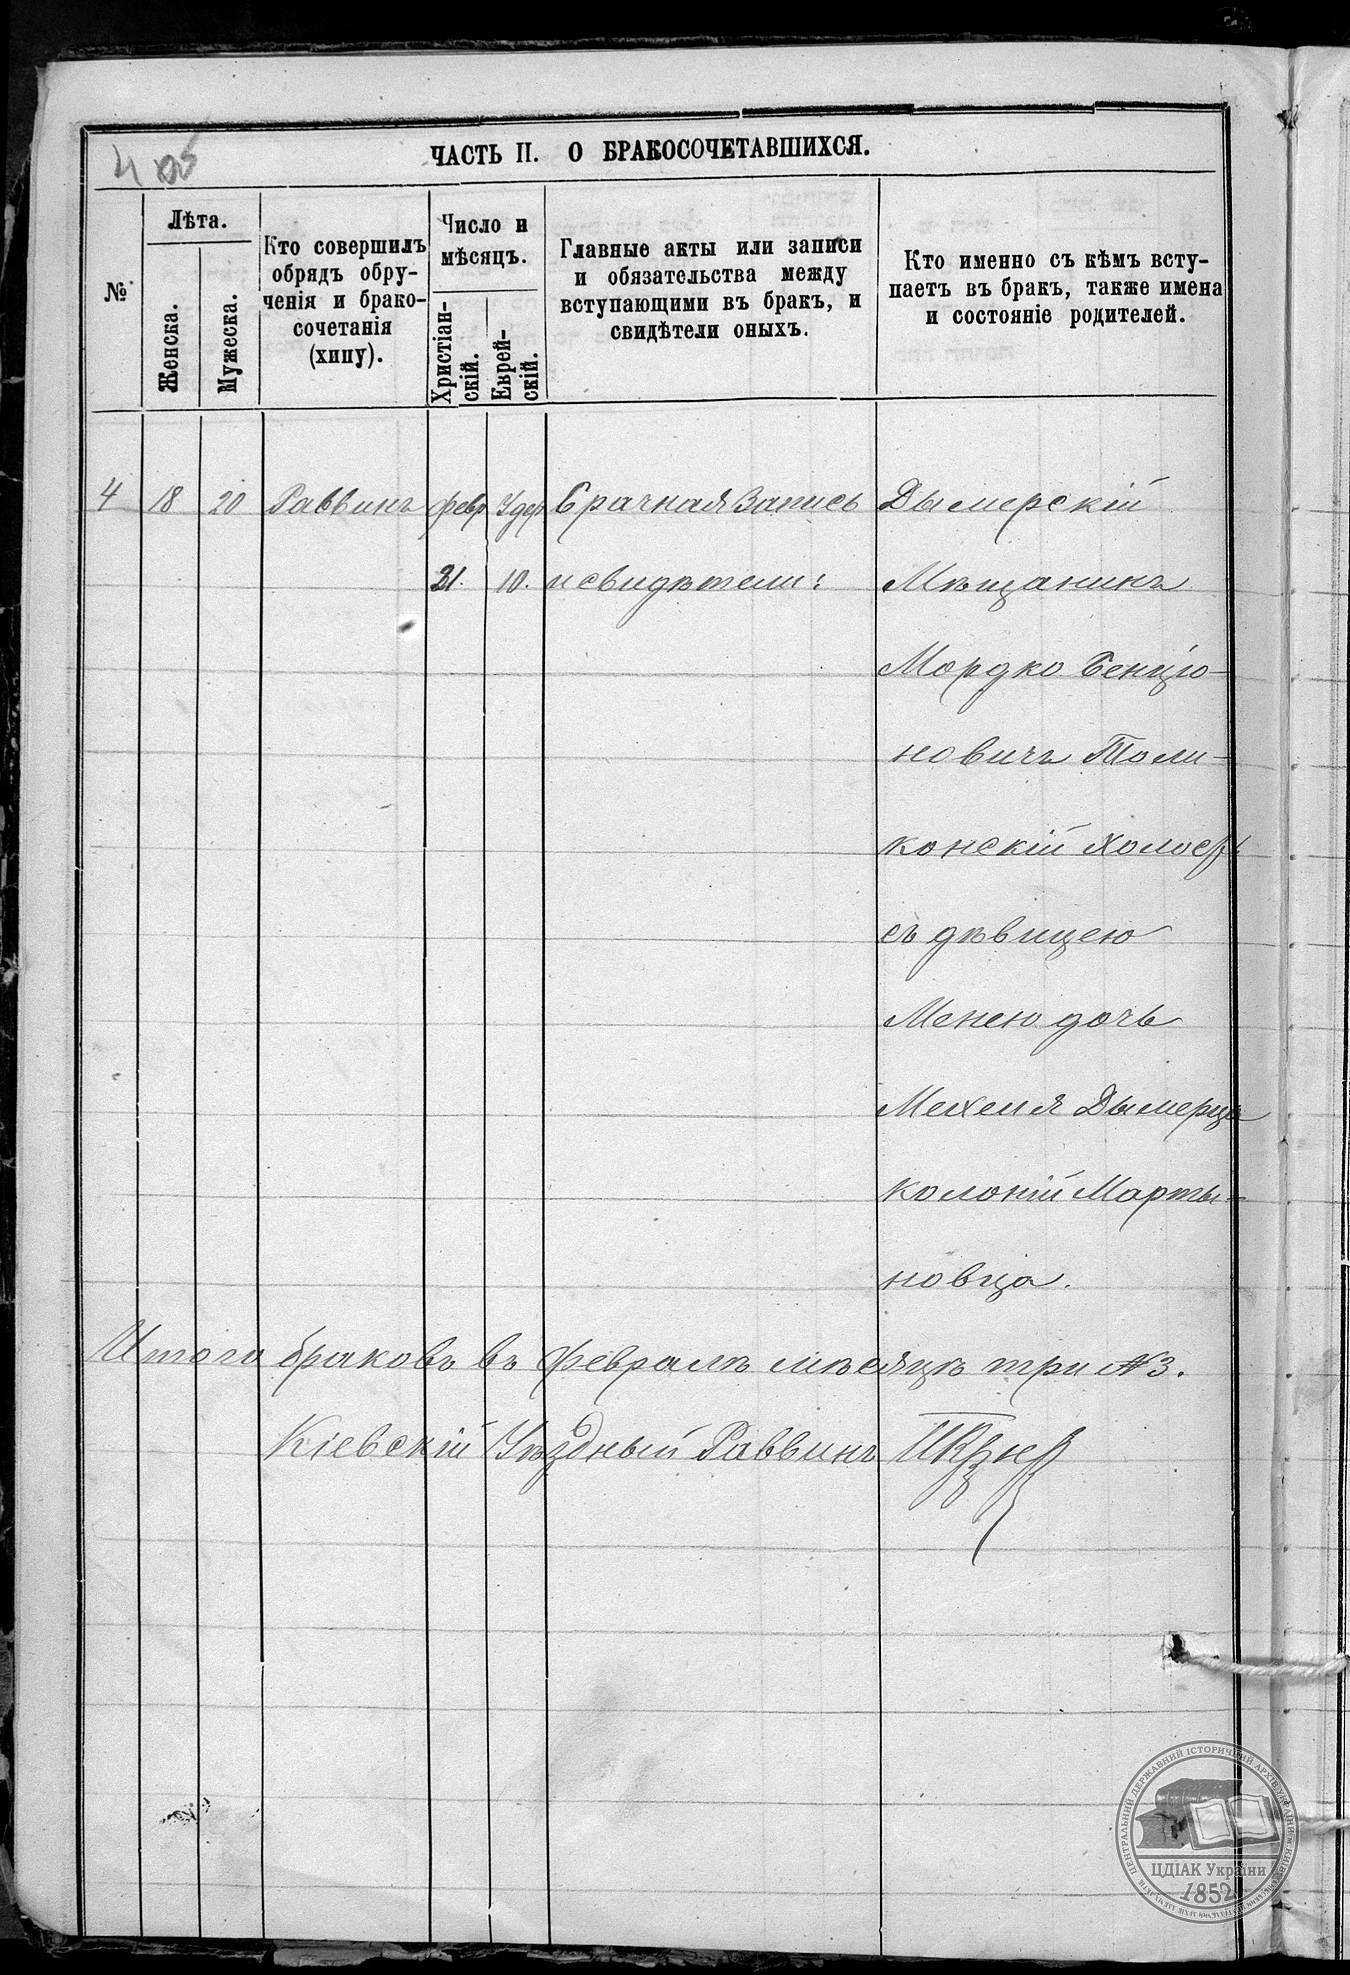 ЧАСТЬ II. О БРАКОСОЧЕТАВШИХСЯ.
№
Лѣта.
Женска.
Мужеска.
Кто совершилъ
обрядъ обру-
ченія и брако-
сочетанія
(хипу).
Число и
мѣсяцъ.
Христіан-
скій.
Еврей-
скій.
Главные акты или записи
и обязательства между
вступающими въ бракъ, и
свидѣтели оныхъ.
Кто именно съ кѣмъ всту-
паетъ въ бракъ, также имена
и состояніе родителей.
4 18 20 Раввинъ февр Удер Брачная Запись Дымерскій
21. 10. и свидѣтели: Мѣщанинъ
Мордко Бенціо-
новичъ Толи-
конскій Холост
съ дѣвицею
Менею дочь
Мехеля Дымерца
колоній Марты-
новца.
Итого браковъ въ Февралѣ мѣсяцѣ три №3.
Кіевскій Уѣздный Раввинъ
ЦЕНТРАЛЬНИЙ ДЕРЖАВНИЙ ІСТОРИЧНИЙ АРХІВ УКРАЇНИ
ЦДІАК України
1852